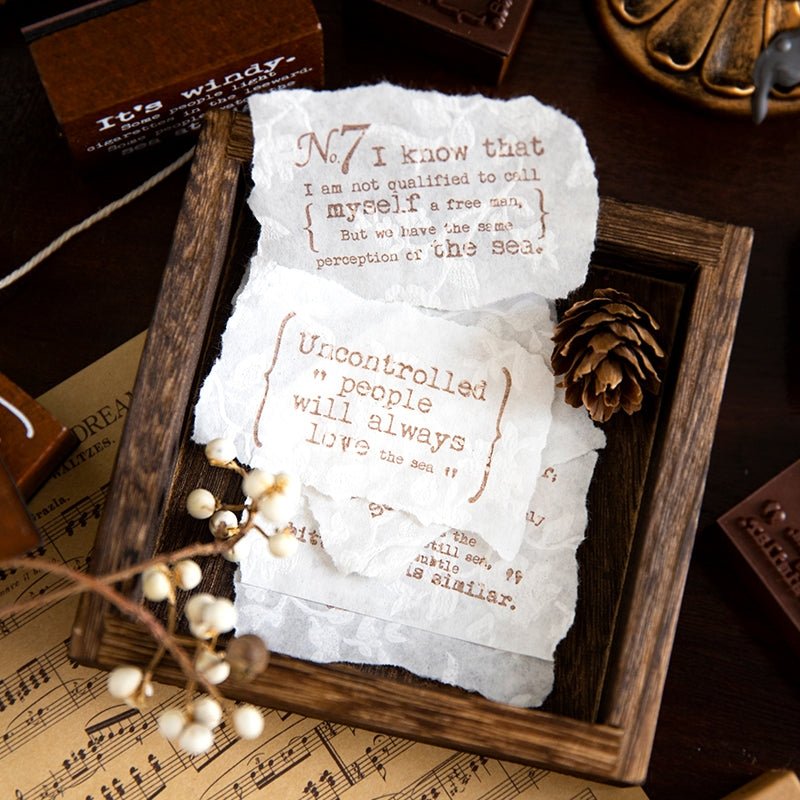 It's windy.
Some people light
cigarettes in the leeward.
Some people
No.7 I know that
I am not qualified to call
{ myself a free man, }
But we have the same
perception of the sea.
Uncontrolled
" people
will always
love the sea "
DREAM
WALTZES.
the
still sea, "
subtle
is similar.